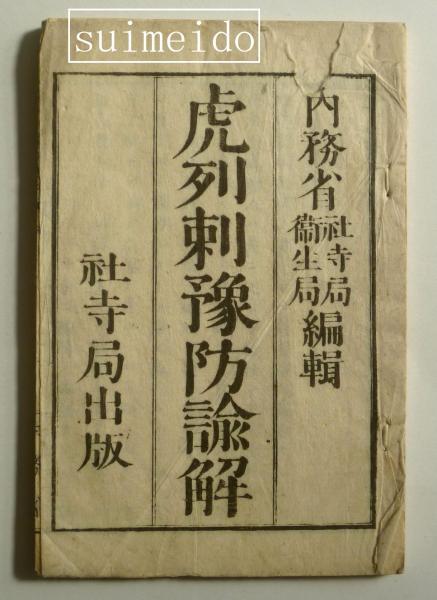 suimeido
内務省社寺局衞生局編輯
虎列剌豫防諭解
社寺局出版